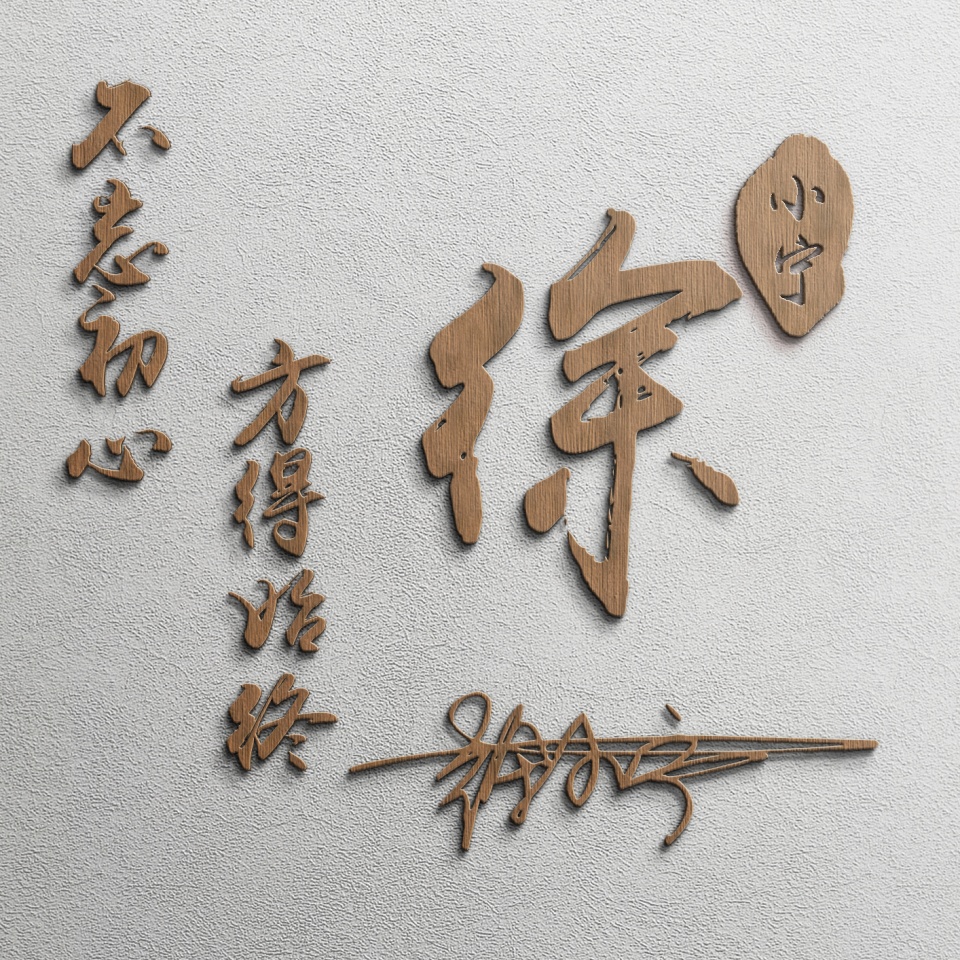 不忘初心
方得始终
徐
小宁